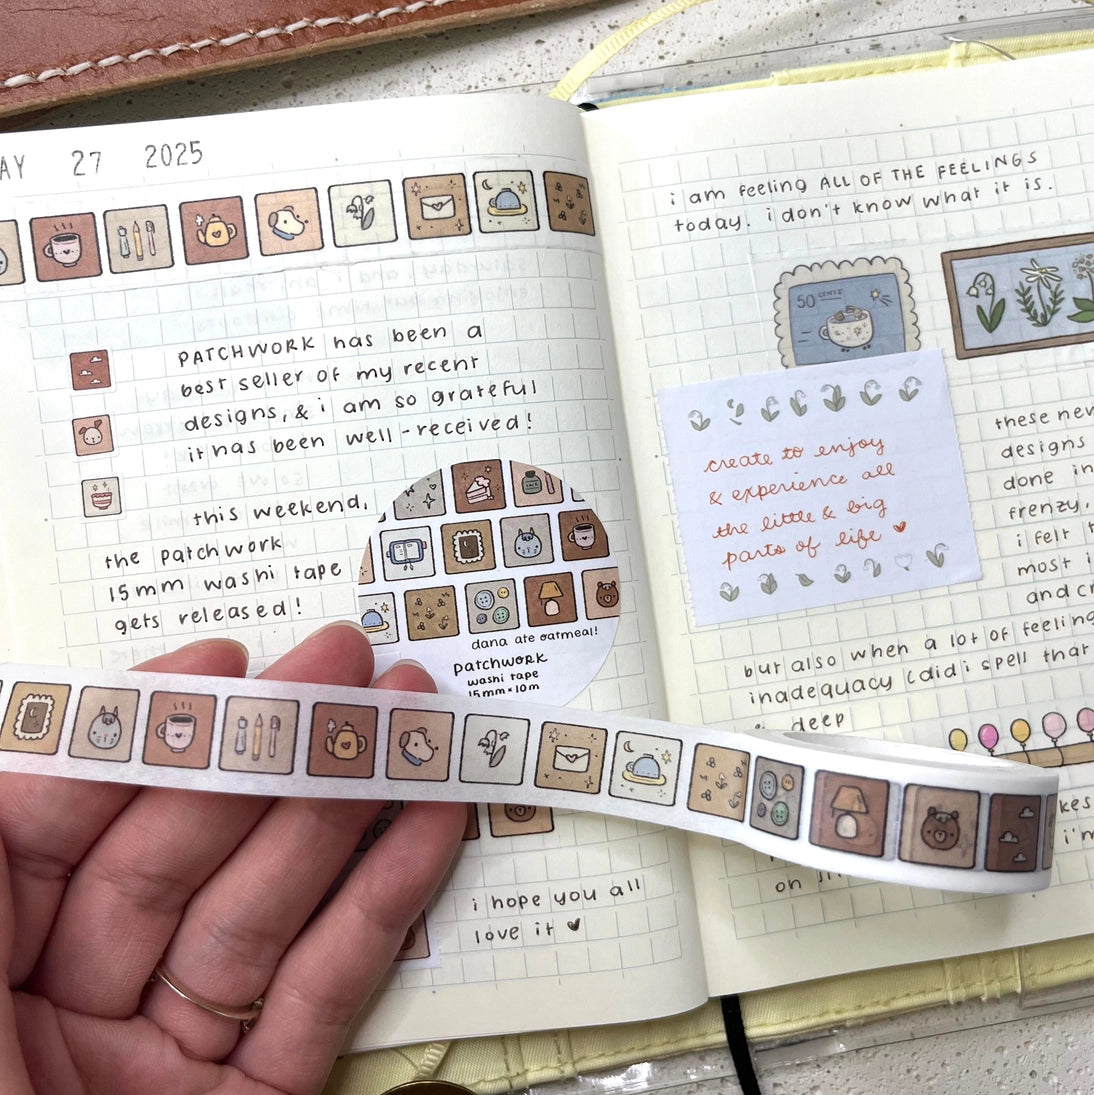 AY 27 2025
PATCHWORK has been a
best seller of my recent
designs, & i am so grateful
it has been well-received!
this weekend,
the patchwork
15mm washi tape
gets released!
dana ate oatmeal!
patchwork
washi tape
15mm × 10m
i hope you all
love it ♥
i am feeling ALL OF THE FEELINGS
today. i don't know what it is.
50 CENTS
create to enjoy
& experience all
the little & big
parts of life ♥
these new
designs
done in
frenzy,
i felt
most i
and cr
but also when a lot of feeling
inadequacy (did i spell that
deep
kes
i'm
on